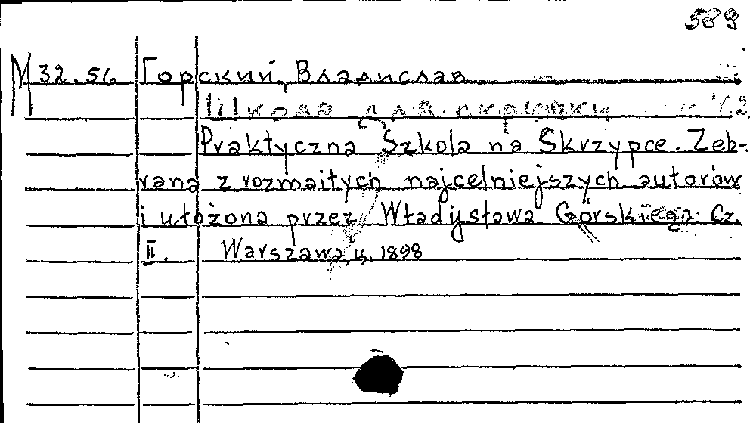 589
М 32.56 Горский, Владислав
Школа для скрипки
Praktyczna Szkola na Skrzypce. Zeb-
rana z rozmaitych najcelniejszych autorów
i ułożona przez Władysława Górskiego. Cz.
II. Warszawa, ц. 1898